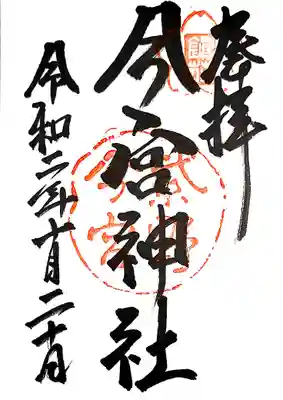 奉拝
今宮神社
令和二年十月二十日